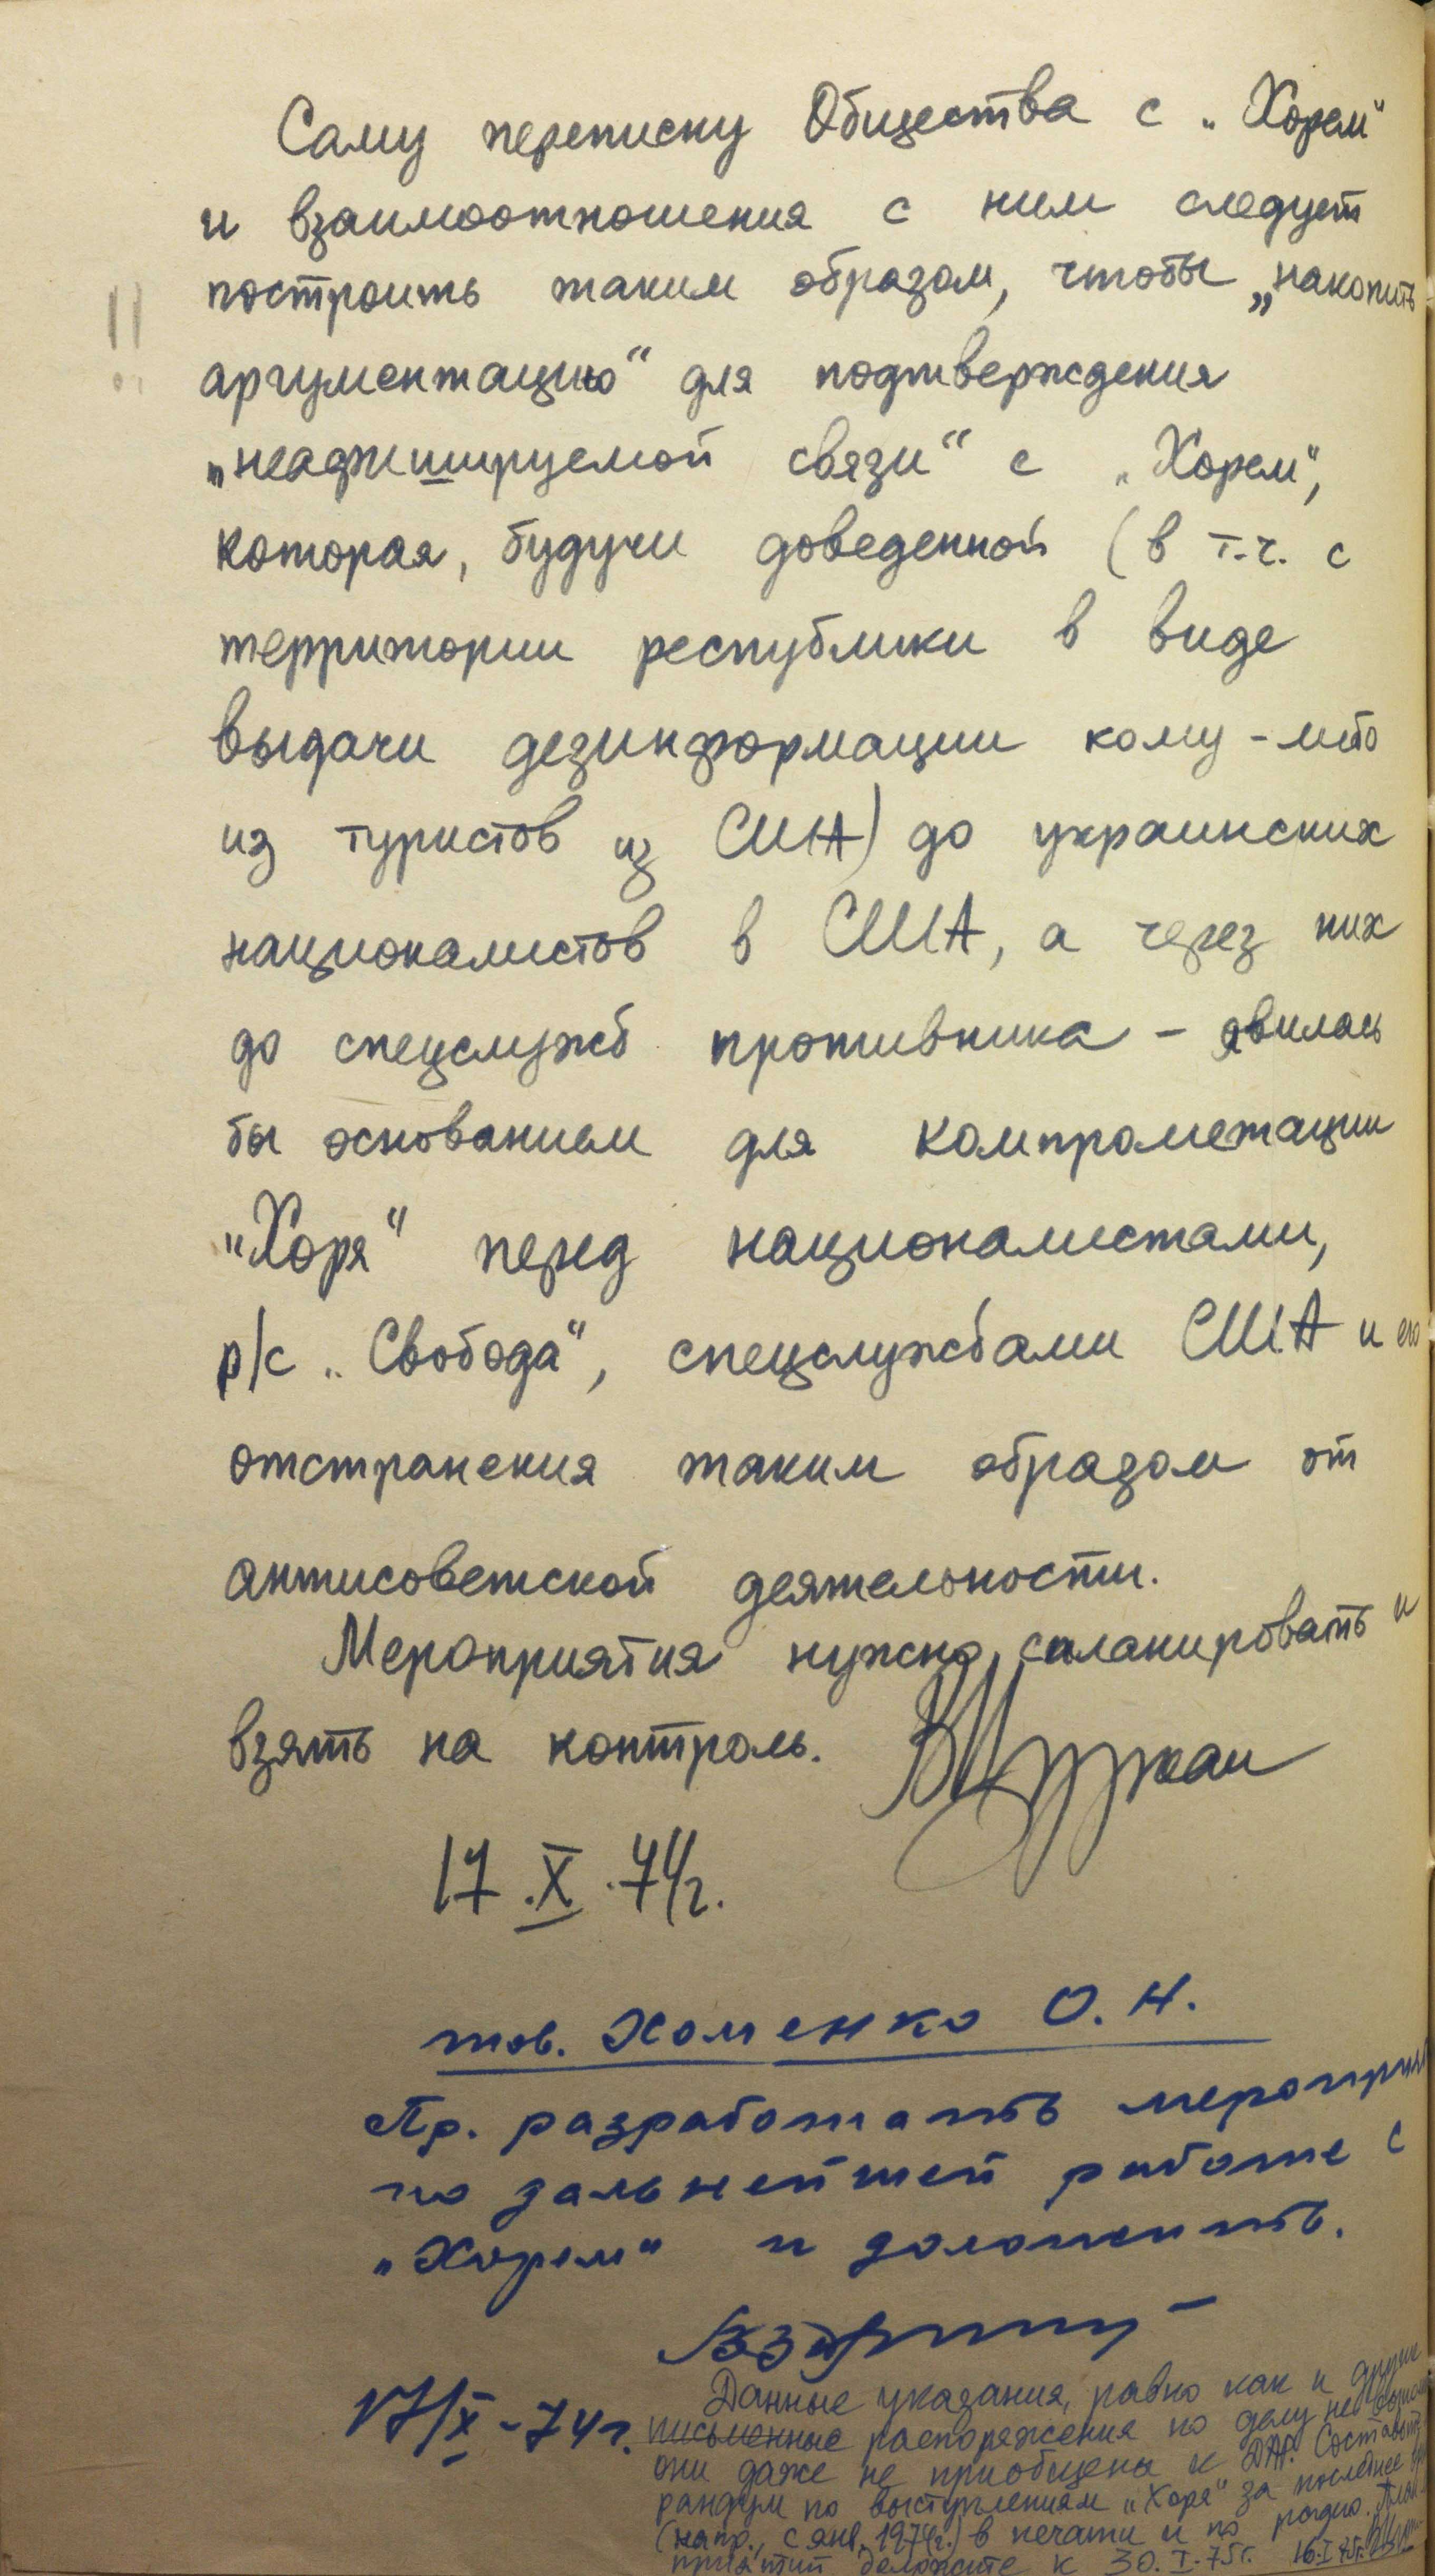 Саму переписку Общества с „Хорем“
и взаимоотношения с ним следует
построить таким образом, чтобы „накопить
аргументацию“ для подтверждения
„неафишируемой связи“ с „Хорем“,
которая, будучи доведенной (в т.ч. с
территории республики в виде
выдачи дезинформации кому-либо
из туристов из США) до украинских
националистов в США, а через них
до спецслужб противника – явилась
бы основанием для компрометации
„Хоря“ перед националистами,
р/с „Свобода“, спецслужбами США и его
отстранения таким образом от
антисоветской деятельности.
Мероприятия нужно спланировать и
взять на контроль.
17.X.74г.
тов. Хоменко О.Н.
Пр. разработать мероприя
по дальнейшей работе с
„Хорем“ и доложить.
17/X-74г.
Данные указания, равно как и другие
письменные распоряжения по делу не
они даже не приобщены к ДАГ. Составьте
рандум по выступлениям „Хоря“ за последнее
(напр., с янв. 1974г.) в печати и по радио. План
приятий доложите к 30.I.75г. 16.I.75г.